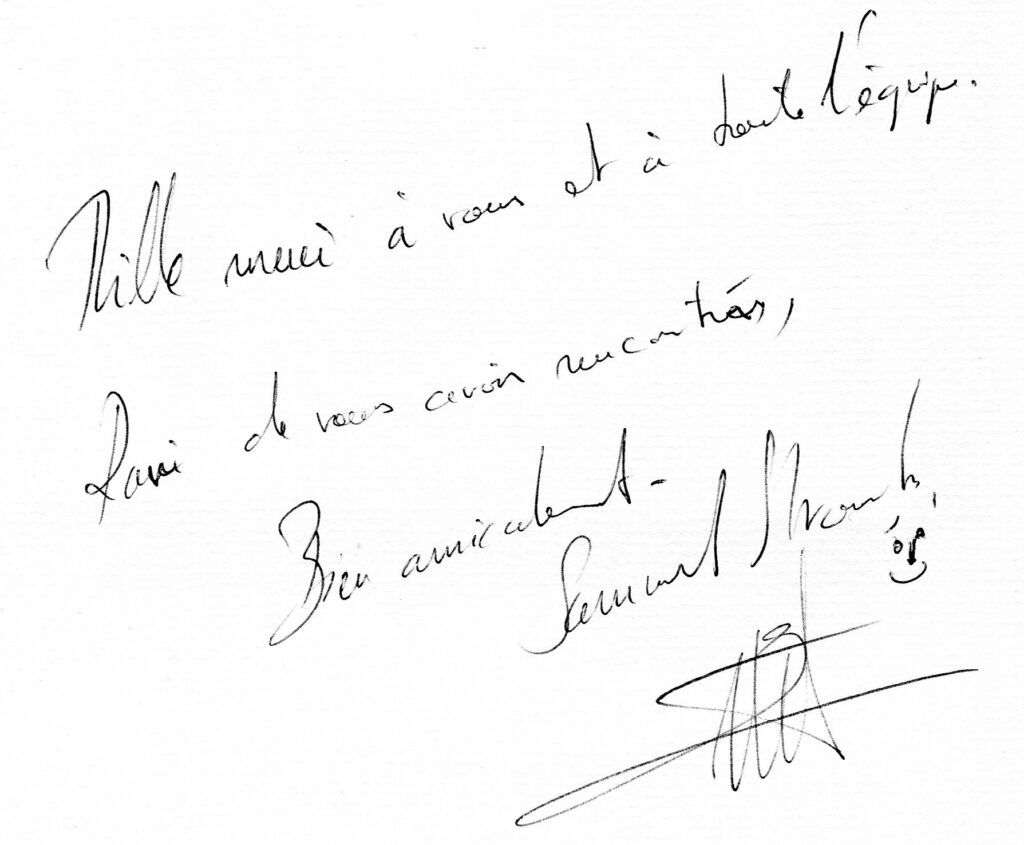 Mille merci à vous et à toute l'équipe.
Ravi de vous avoir rencontrés,
Bien amicalement -